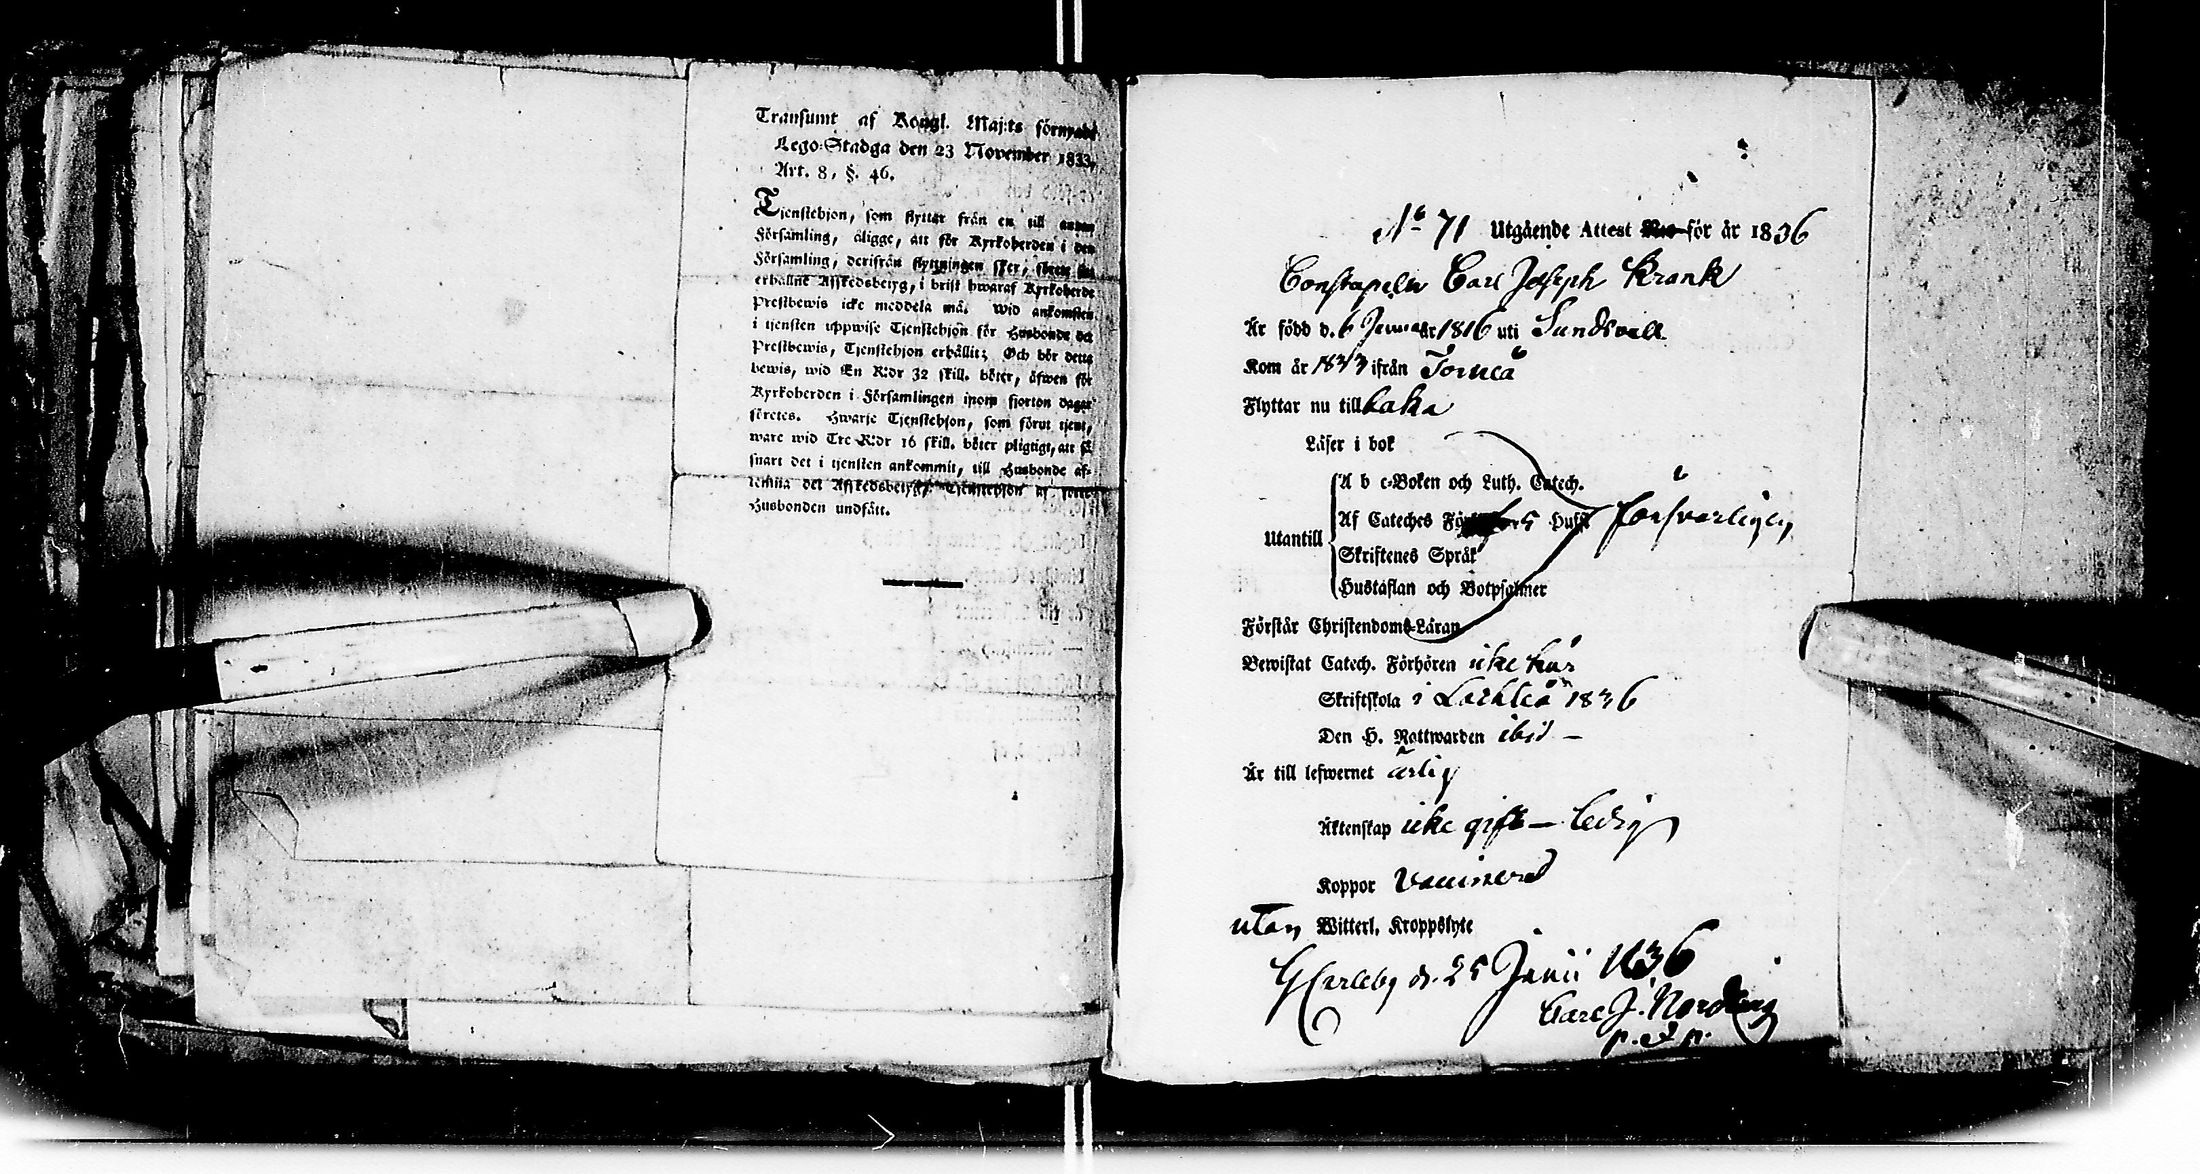 Transumt af Kongl. Maj:ts förnyade
Lego-Stadga den 23 November 1833,
Art. 8, §. 46.
Tjenstehjon, som flyttar från en till annan
Församling, åligge, att för Kyrkoherden i den
Församling, derifrån flyttningen sker, förete sitt
erhållne Afskedsbetyg, i brist hwaraf Kyrkoherde
Prestbewis icke meddela må. Wid ankomsten
i tjensten uppwise Tjenstehjon för Husbonde det
Prestbewis, Tjenstehjon erhållit; Och bör detta
bewis, wid En R:dr 32 skill. böter, äfwen för
Kyrkoherden i Församlingen inom fjorton dagar
företes. Hwarje Tjenstehjon, som förut tjent,
ware wid Tre R:dr 16 skill. böter pligtigt, att så
snart det i tjensten ankommit, till Husbonde af-
lemna det Afskedsbetyg, Tjenstehjon af förre
Husbonden undfått.
No 71 Utgående Attest för år 1836
Constapeln Carl Joseph Krank
Är född d. 6 Januar 1816 uti Sundsvall
Kom år 1833 ifrån Torneå
Flyttar nu till baka
Läser i bok
A b c-Boken och Luth. Catech.
Af Cateches Hufst försvarligen
Utantill
Skriftenes Språk
Hustaflan och Botpsalmer
Förstår Christendoms-Läran
Bewistat Catech. Förhören icke här
Skriftskola i Lochteå 1836
Den H. Nattwarden ibid –
Är till lefwernet ärlig
Äktenskap icke gift – ledig
Koppor Vaccinerad
utan Witterl. Kroppslyte
GCarleby d. 25 Junii 1836
Carl J. Nordling
p. et p.